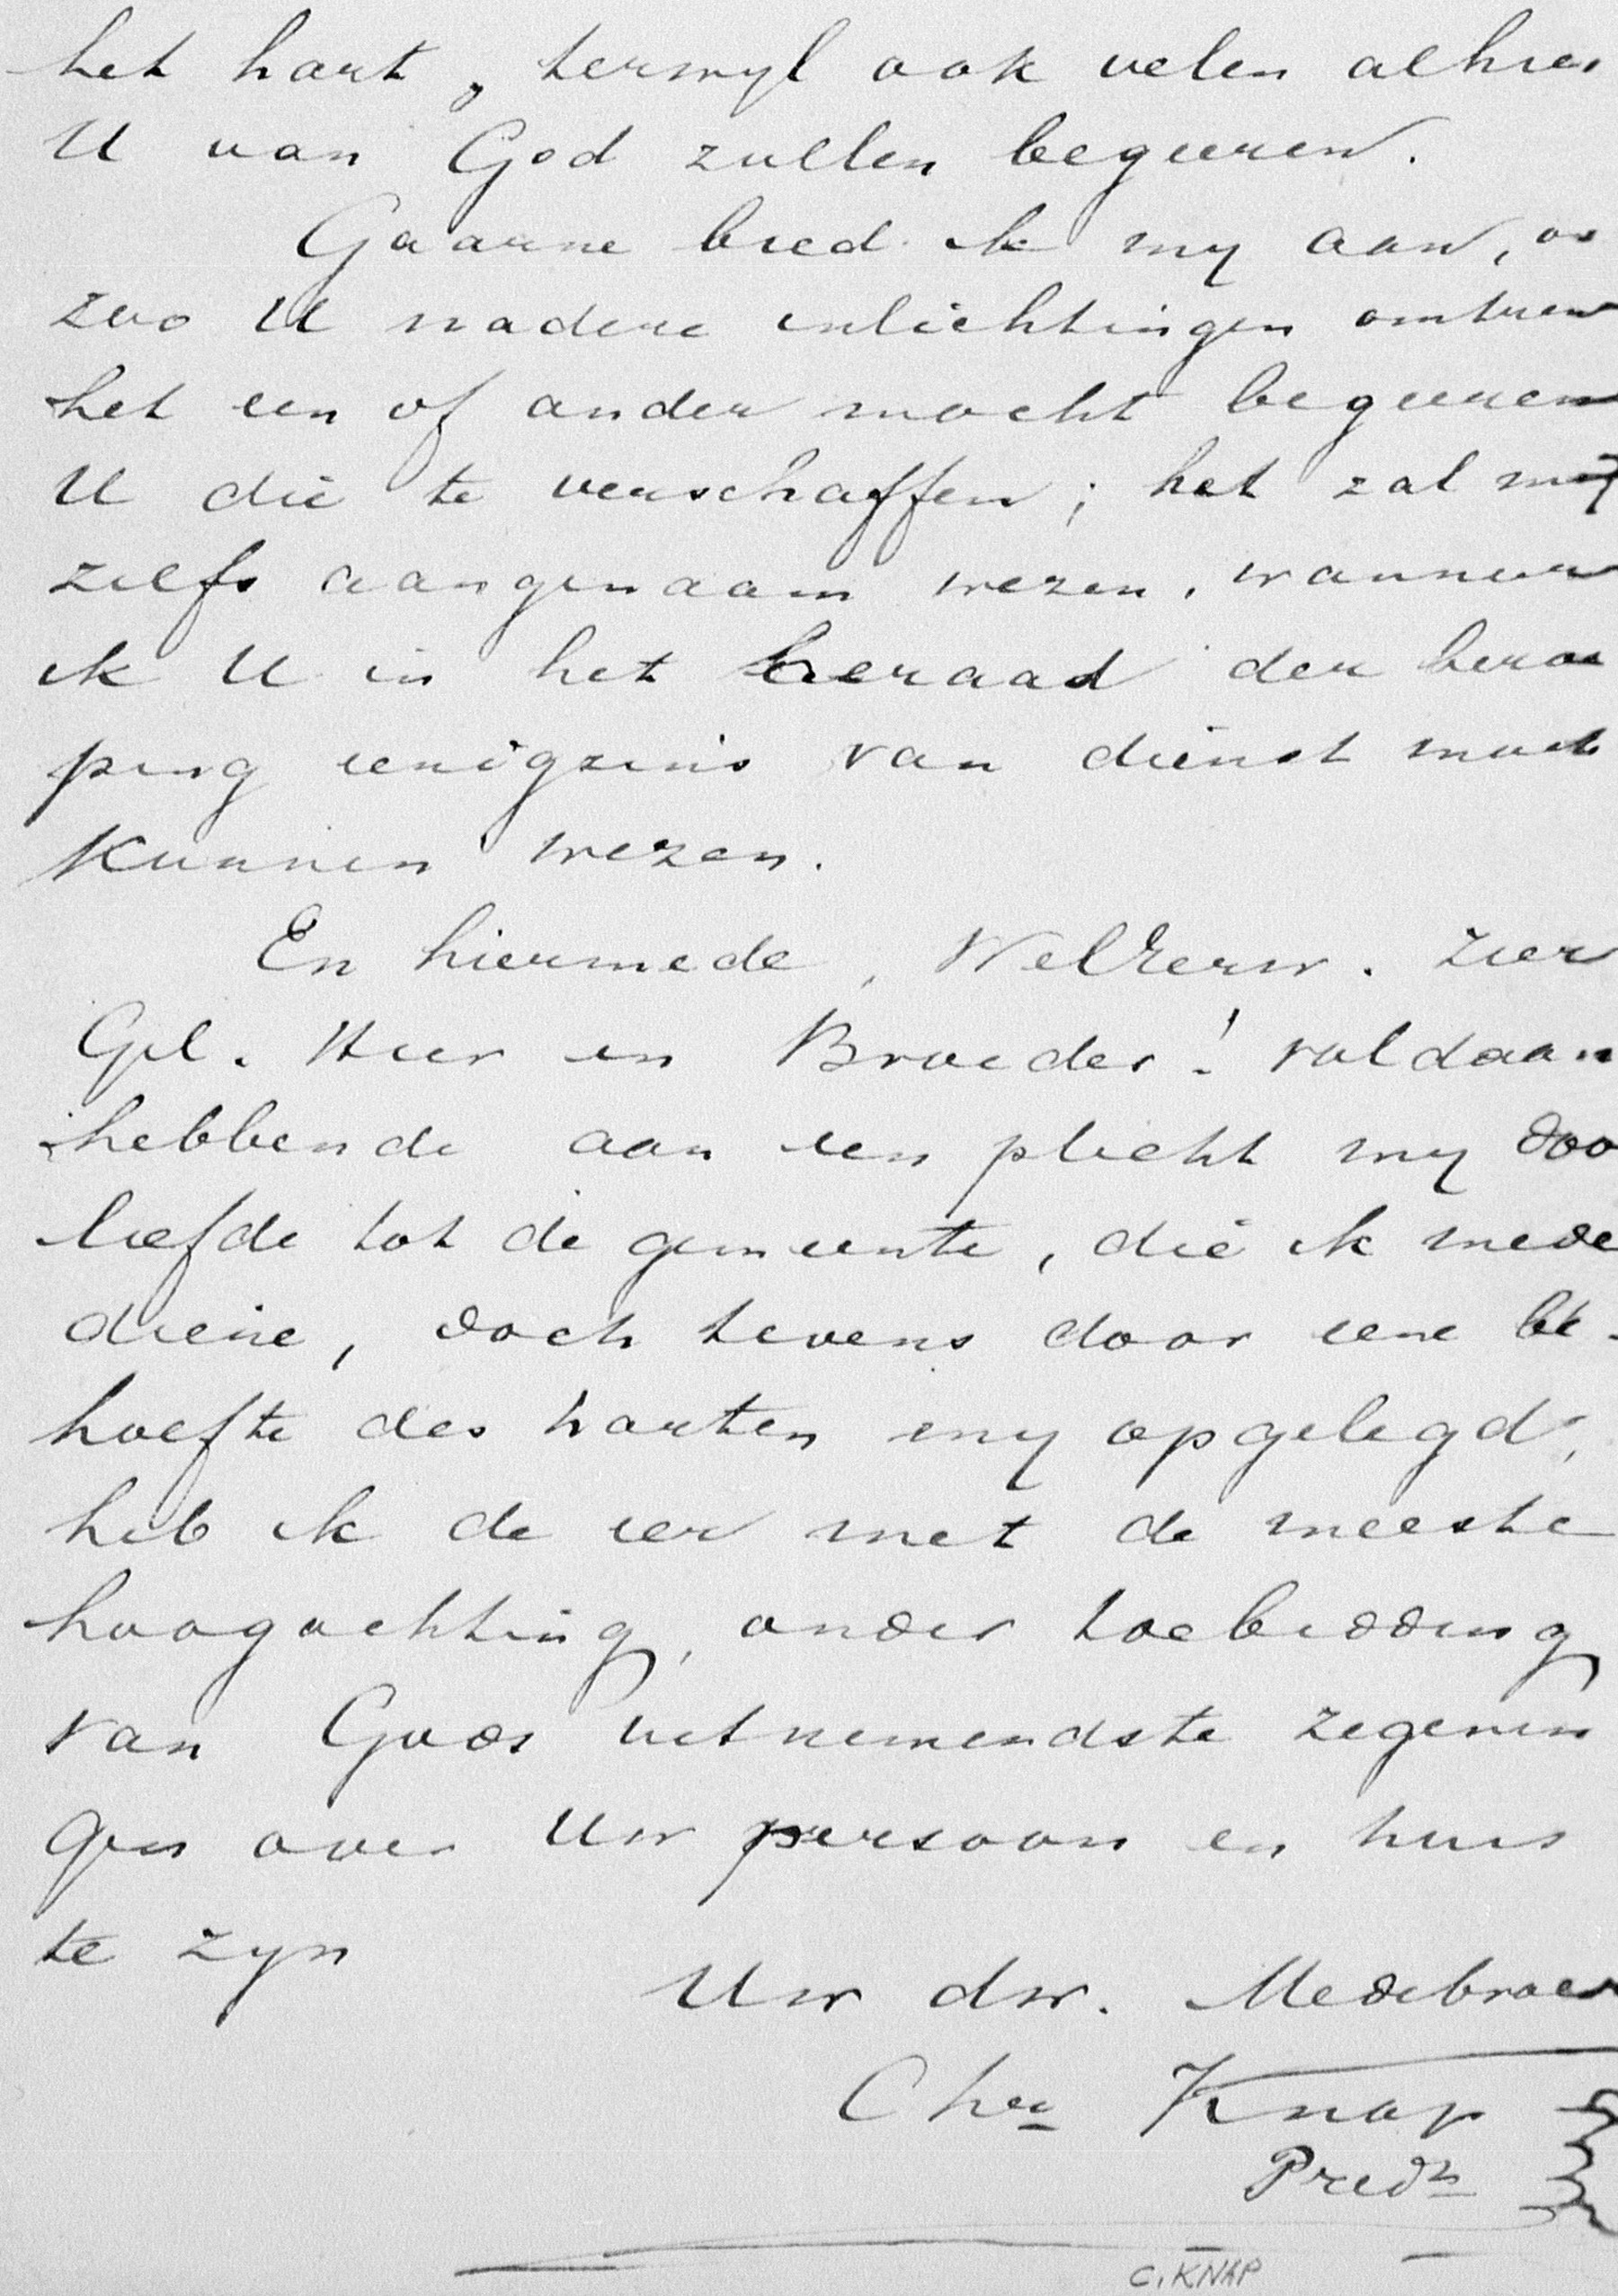 het hart, terwyl ook velen alhier
U van God zullen begeeren.
Gaarne bied ik my aan,
zoo U nadere inlichtingen omtren
het een of ander mocht begeeren
U die te verschaffen; het zal my
zelfs aangenaam wezen, wanneer
ik U in het beraad der beroe
ping eenigzins van dienst moch
kunnen wezen.
En hiermede, WelEerw. Zeer
Gel. Heer en Broeder! voldaan
hebbende aan een plicht my doo
liefde tot de gemeente, die ik mede
diene, doch tevens door eene be-
hoefte des harten my opgelegd,
heb ik de eer met de meeste
hoogachting, onder toebidding
van Gods uitnemendste zegenin
gen over Uw persoon en huis
te zyn
Uw dw. Medebroer
Chr Knap
Predt
C. KNAP